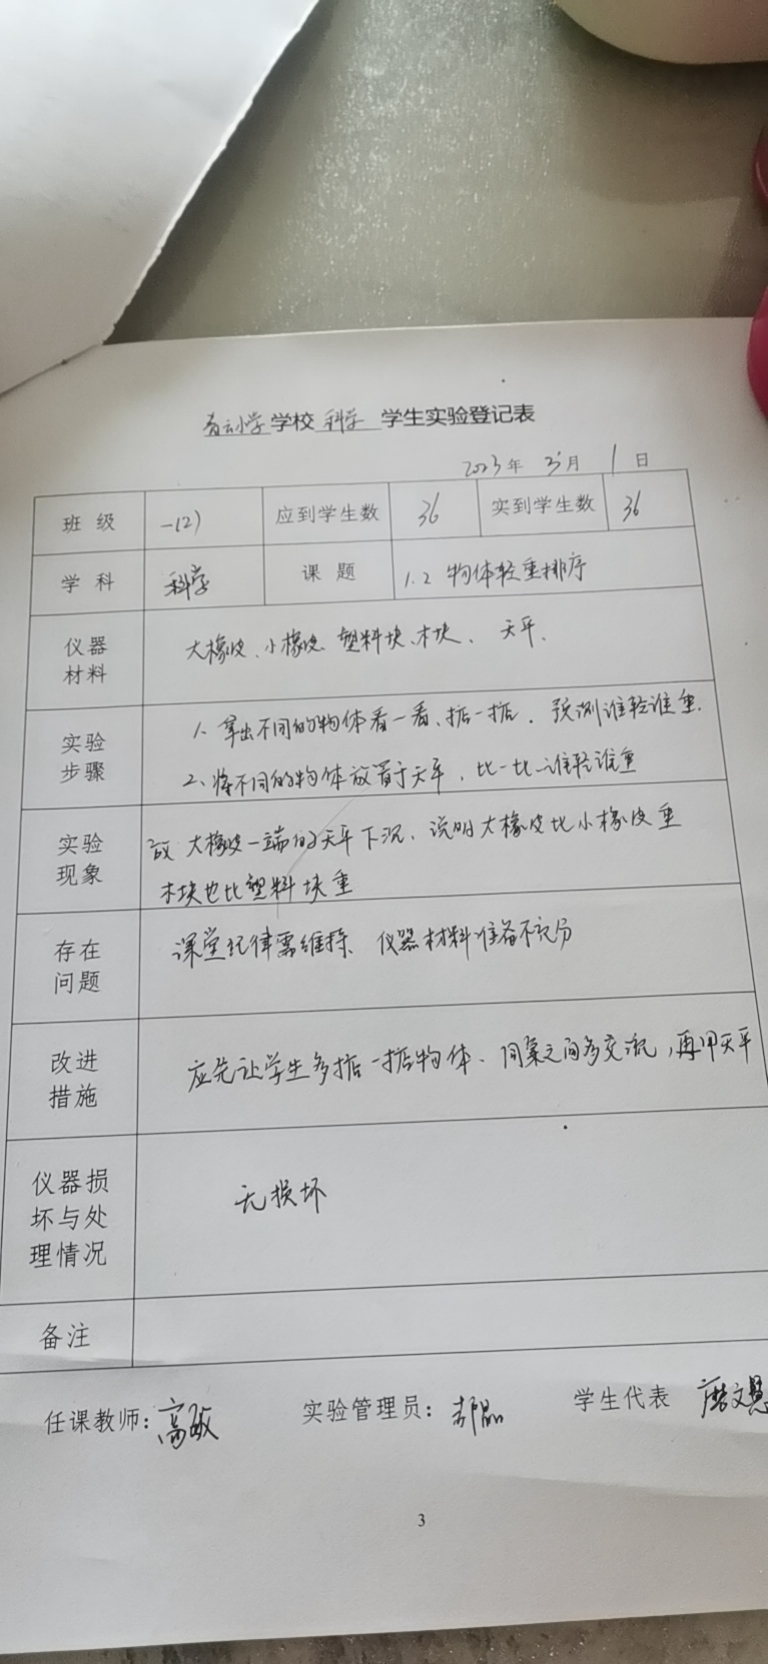 青云小学学校 科学 学生实验登记表
2023年 3月 1日
班级 一(2) 应到学生数 36 实到学生数 36
学科 科学 课题 1.2 物体轻重排序
仪器材料 大橡皮、小橡皮、塑料块、木块、天平、
实验步骤 1、拿出不同的物体看一看、掂一掂、预测谁轻谁重.
2、将不同的物体放置于天平、比一比谁轻谁重
实验现象 放大橡皮一端的天平下沉、说明大橡皮比小橡皮重
木块也比塑料块重
存在问题 课堂纪律需维持、仪器材料准备不充分
改进措施 应先让学生多掂一掂物体、同桌之间多交流,再用天平
仪器损坏与处理情况 无损坏
备注
任课教师:高敏 实验管理员: 学生代表
3